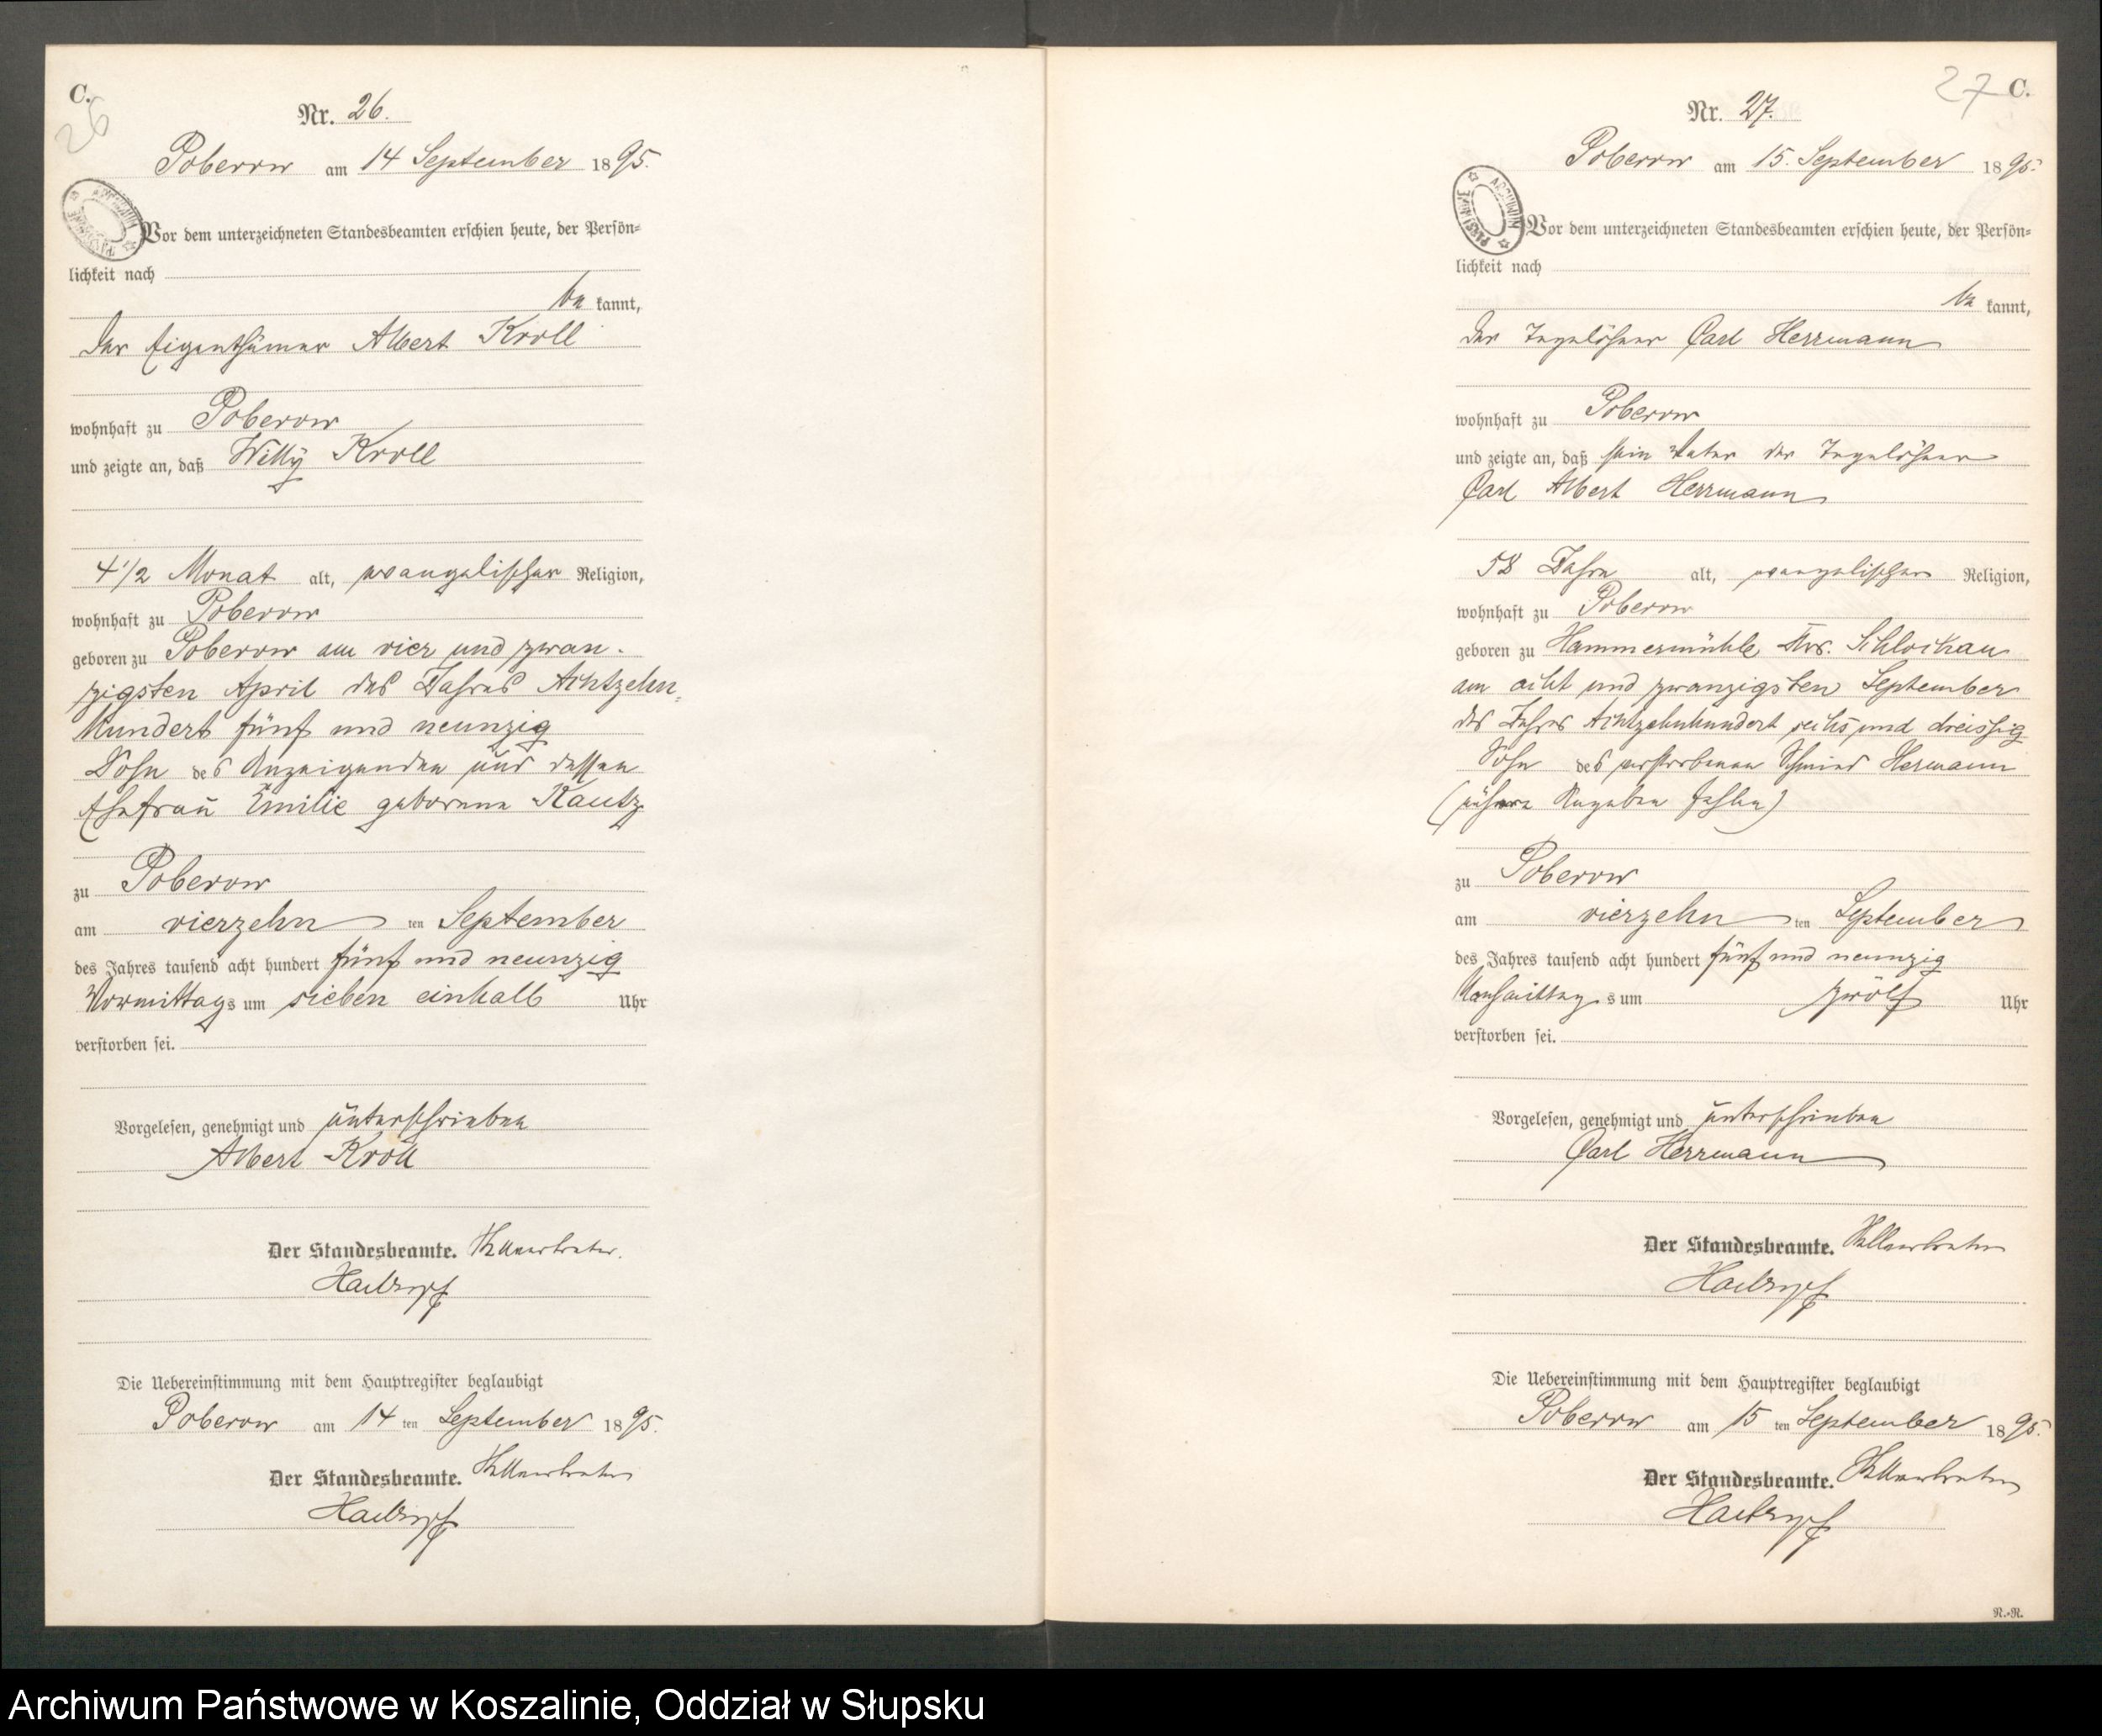 C.
26
Nr. 26.
Poberow am 14 September 1895.
Vor dem unterzeichneten Standesbeamten erschien heute, der Persön=
lichkeit nach
be kannt,
der Eigenthümer Albert Kroll
wohnhaft zu Poberow
und zeigte an, daß Willy Kroll
4 1/2 Monat alt, evangelischer Religion,
wohnhaft zu Poberow
geboren zu Poberow am vier und zwan-
zigsten April des Jahres Achtzehn=
hundert fünf und neunzig
Sohn des Anzeigenden und dessen
Ehefrau Emilie geborene Kautz
zu Poberow
am vierzehn ten September
des Jahres tausend acht hundert fünf und neunzig
Vormittags um sieben einhalb Uhr
verstorben sei.
Vorgelesen, genehmigt und unterschrieben
Albert Kroll
Der Standesbeamte.
Die Uebereinstimmung mit dem Hauptregister beglaubigt
Poberow am 14 ten September 1895.
Der Standesbeamte.
27 C.
Nr. 27.
Poberow am 15. September 1895.
ARCHIWUM PAŃSTWOWE
Vor dem unterzeichneten Standesbeamten erschien heute, der Persön=
lichkeit nach
be kannt,
der Tagelöhner Carl Herrmann
wohnhaft zu Poberow
und zeigte an, daß sein Vater der Tagelöhner
Carl Albert Herrmann
58 Jahre alt, evangelischer Religion,
wohnhaft zu Poberow
geboren zu Hammermühle Krs. Schlochau
am acht und zwanzigsten September
des Jahres Achtzehnhundert sechs und dreissig
Sohn des verstorbenen Schmied Hermann
(nähere Angaben fehlen)
zu Poberow
am vierzehn ten September
des Jahres tausend acht hundert fünf und neunzig
Nachmittags um zwölf Uhr
verstorben sei.
Vorgelesen, genehmigt und unterschrieben
Carl Herrmann
Der Standesbeamte.
Die Uebereinstimmung mit dem Hauptregister beglaubigt
Poberow am 15 ten September 1895.
Der Standesbeamte.
N.-N.
Archiwum Państwowe w Koszalinie, Oddział w Słupsku